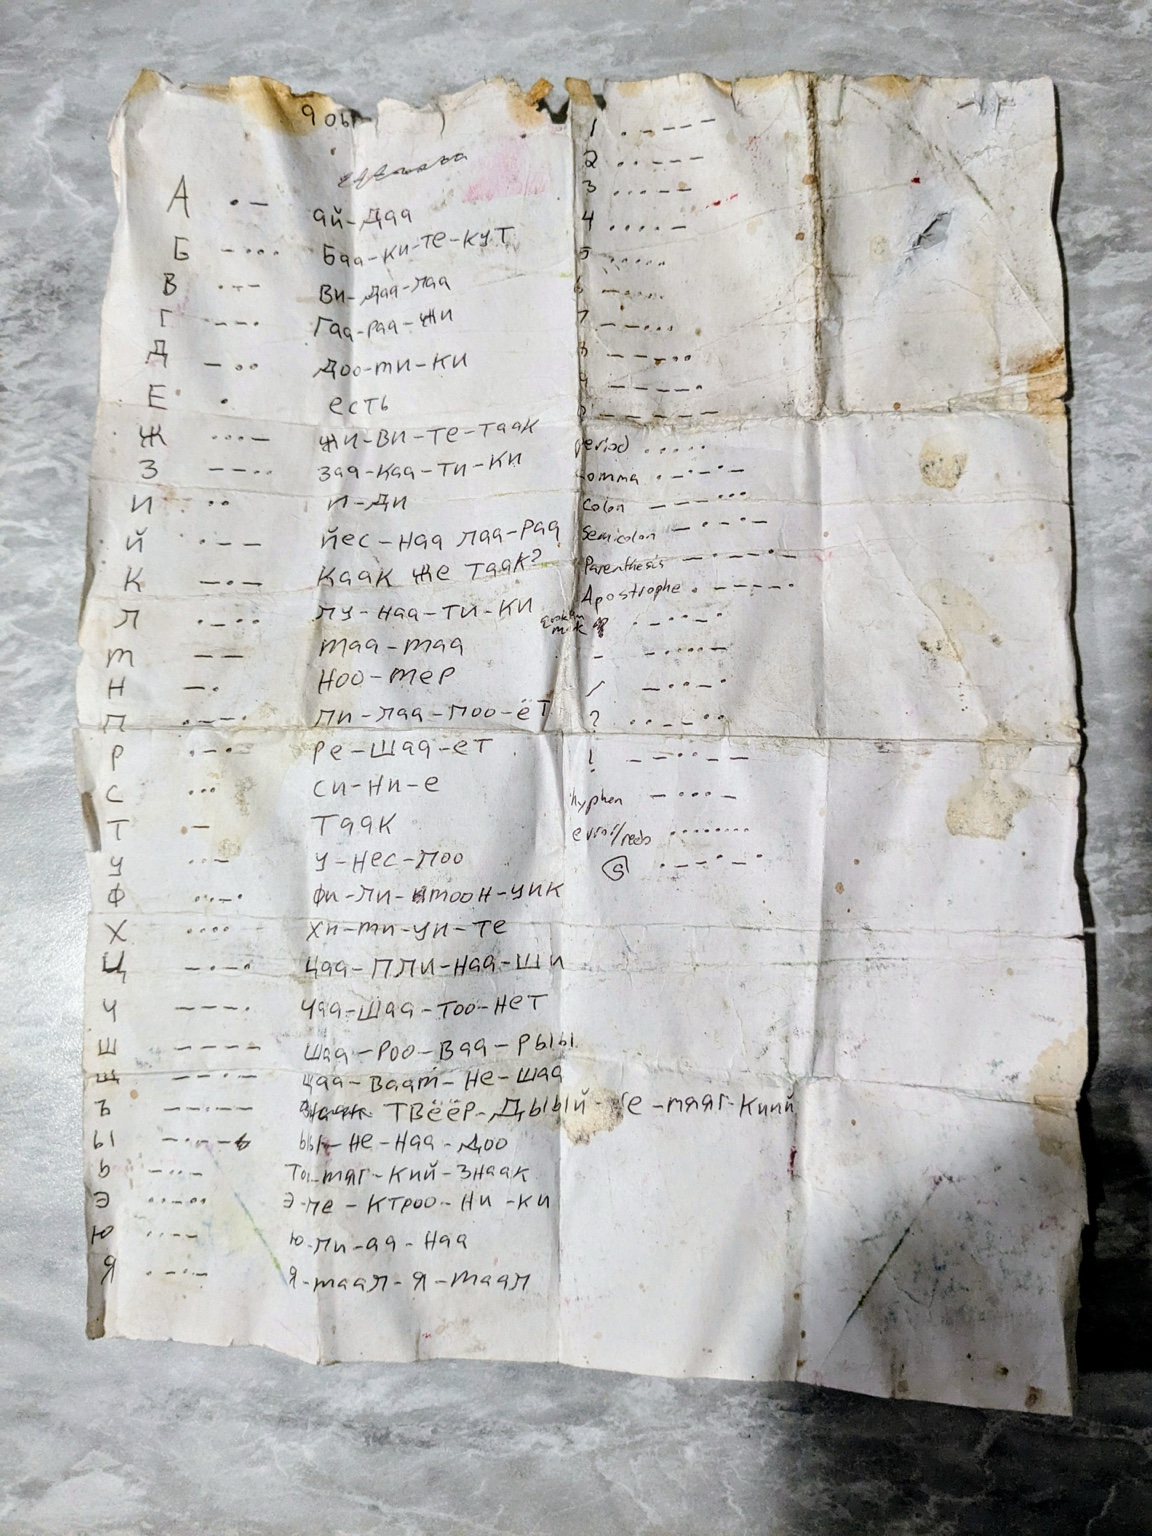 9 оы
А .- ай-даа
Б -... Баа-ки-те-кут
В .-- Ви-даа-лаа
Г --. Гаа-раа-жи
Д -.. Доо-ми-ки
Е . есть
Ж ...- жи-ви-те-таак
З --.. заа-каа-ти-ки
И .. и-ди
Й .--- йес-наа паа-раа
К -.- Каак же таак?
Л .-.. лу-наа-ти-ки
М -- маа-маа
Н -. Ноо-мер
П .--. пи-лаа-поо-ёт
Р .-. ре-шаа-ет
С ... си-ни-е
Т - Таак
У ..- у-нес-лоо
Ф ..-. фи-ли-моон-чик
Х .... хи-ми-чи-те
Ц -.-. цаа-пли-наа-ши
Ч ---. чаа-шаа-тоо-нет
Ш ---- шаа-роо-ваа-рыы
Щ --.- щаа-ваам-не-шаа
Ъ твёёр-дыый-не-мяяг-киий
Ы -.-- ыы-не-наа-доо
Ь -..- То-мяг-кий-знаак
Э ..-.. Э-ле-ктроо-ни-ки
Ю ..-- ю-ли-аа-наа
Я .-.- я-маал-я-маал
1 .----
2 ..---
3 ...--
4 ....-
5 .....
6 -....
7 --...
8 ---..
9 ----.
0 -----
period .....
comma .-.-.-
colon ---...
Semicolon -.-.-
Parenthesis -.--.-
Apostrophe .----.
quotation mark " .-..-.
_ -....-
/ -..-.
? ..--..
! --..--
hyphen -...-
error/redo ........
@ .--.-.